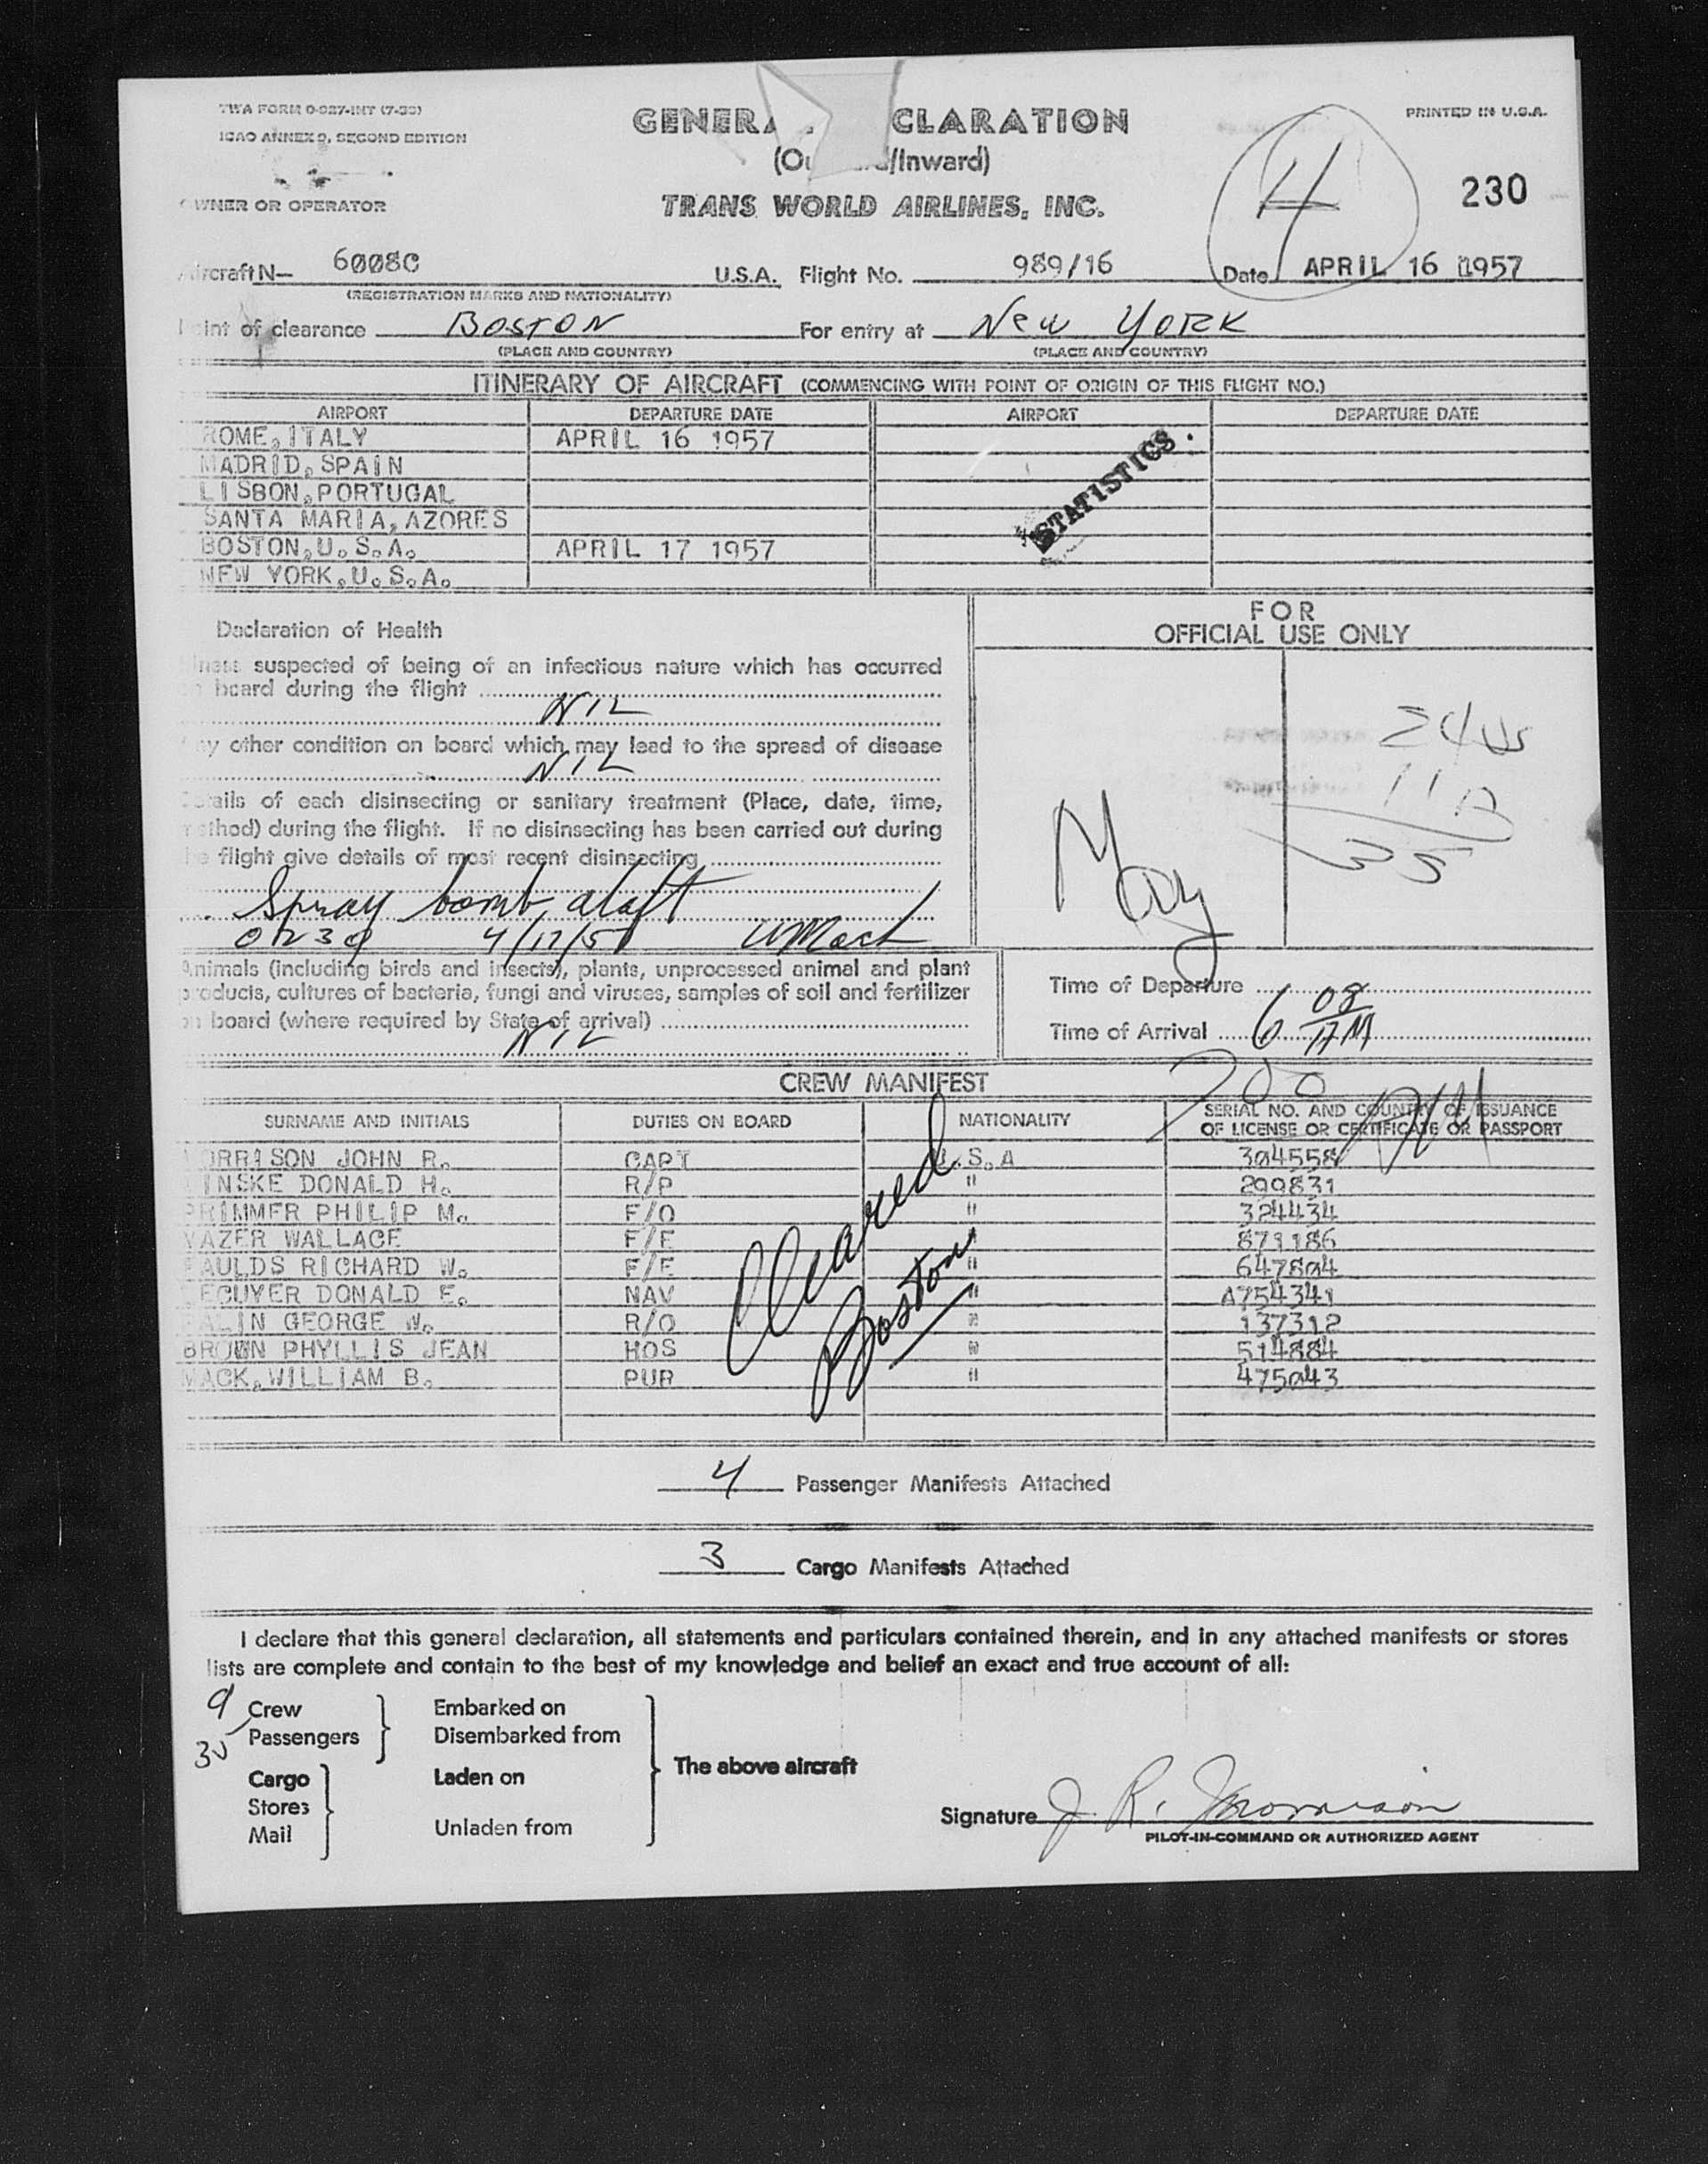 TWA FORM
ICAO ANNEX 9, SECOND EDITION
PRINTED IN U.S.A.
CLARATION
/Inward)
TRANS WORLD AIRLINES, INC.
4
230
OWNER OR OPERATOR
Aircraft N— 6008C U.S.A. Flight No. 989/16 Date APRIL 16 1957
(REGISTRATION MARKS AND NATIONALITY)
of clearance BOSTON For entry at NEW YORK
(PLACE AND COUNTRY) (PLACE AND COUNTRY)
ITINERARY OF AIRCRAFT (COMMENCING WITH POINT OF ORIGIN OF THIS FLIGHT NO.)
AIRPORT DEPARTURE DATE AIRPORT DEPARTURE DATE
ROME, ITALY APRIL 16 1957
MADRID, SPAIN
LISBON, PORTUGAL
SANTA MARIA, AZORES
BOSTON, U.S.A. APRIL 17 1957
NEW YORK, U.S.A.
STATISTICS
Declaration of Health
suspected of being of an infectious nature which has occurred
board during the flight
NIL
other condition on board which may lead to the spread of disease
NIL
of each disinsecting or sanitary treatment (Place, date, time,
during the flight. If no disinsecting has been carried out during
flight give details of most recent disinsecting
Spray bomb
0230 4/17/57 WMack
FOR
OFFICIAL USE ONLY
35
Animals (including birds and insects), plants, unprocessed animal and plant
products, cultures of bacteria, fungi and viruses, samples of soil and fertilizer
board (where required by State of arrival)
NIL
Time of Departure
Time of Arrival 6 08 AM
CREW MANIFEST
SURNAME AND INITIALS DUTIES ON BOARD NATIONALITY SERIAL NO. AND COUNTRY OF ISSUANCE
OF LICENSE OR CERTIFICATE OR PASSPORT
MORRISON JOHN R. CAPT U.S.A 304558
DONALD H. R/P " 299831
PHILIP M. F/O " 324434
WALLACE F/E " 873186
RICHARD W. F/E " 647804
DONALD E. NAV " A754341
GEORGE W. R/O " 137312
BROWN PHYLLIS JEAN HOS " 514884
MACK, WILLIAM B. PUR " 475043
Cleared
Boston
4 Passenger Manifests Attached
3 Cargo Manifests Attached
I declare that this general declaration, all statements and particulars contained therein, and in any attached manifests or stores
lists are complete and contain to the best of my knowledge and belief an exact and true account of all:
9 Crew
35 Passengers
Embarked on
Disembarked from
Cargo
Stores
Mail
Laden on
Unladen from
The above aircraft
Signature J. R. Morrison
PILOT-IN-COMMAND OR AUTHORIZED AGENT